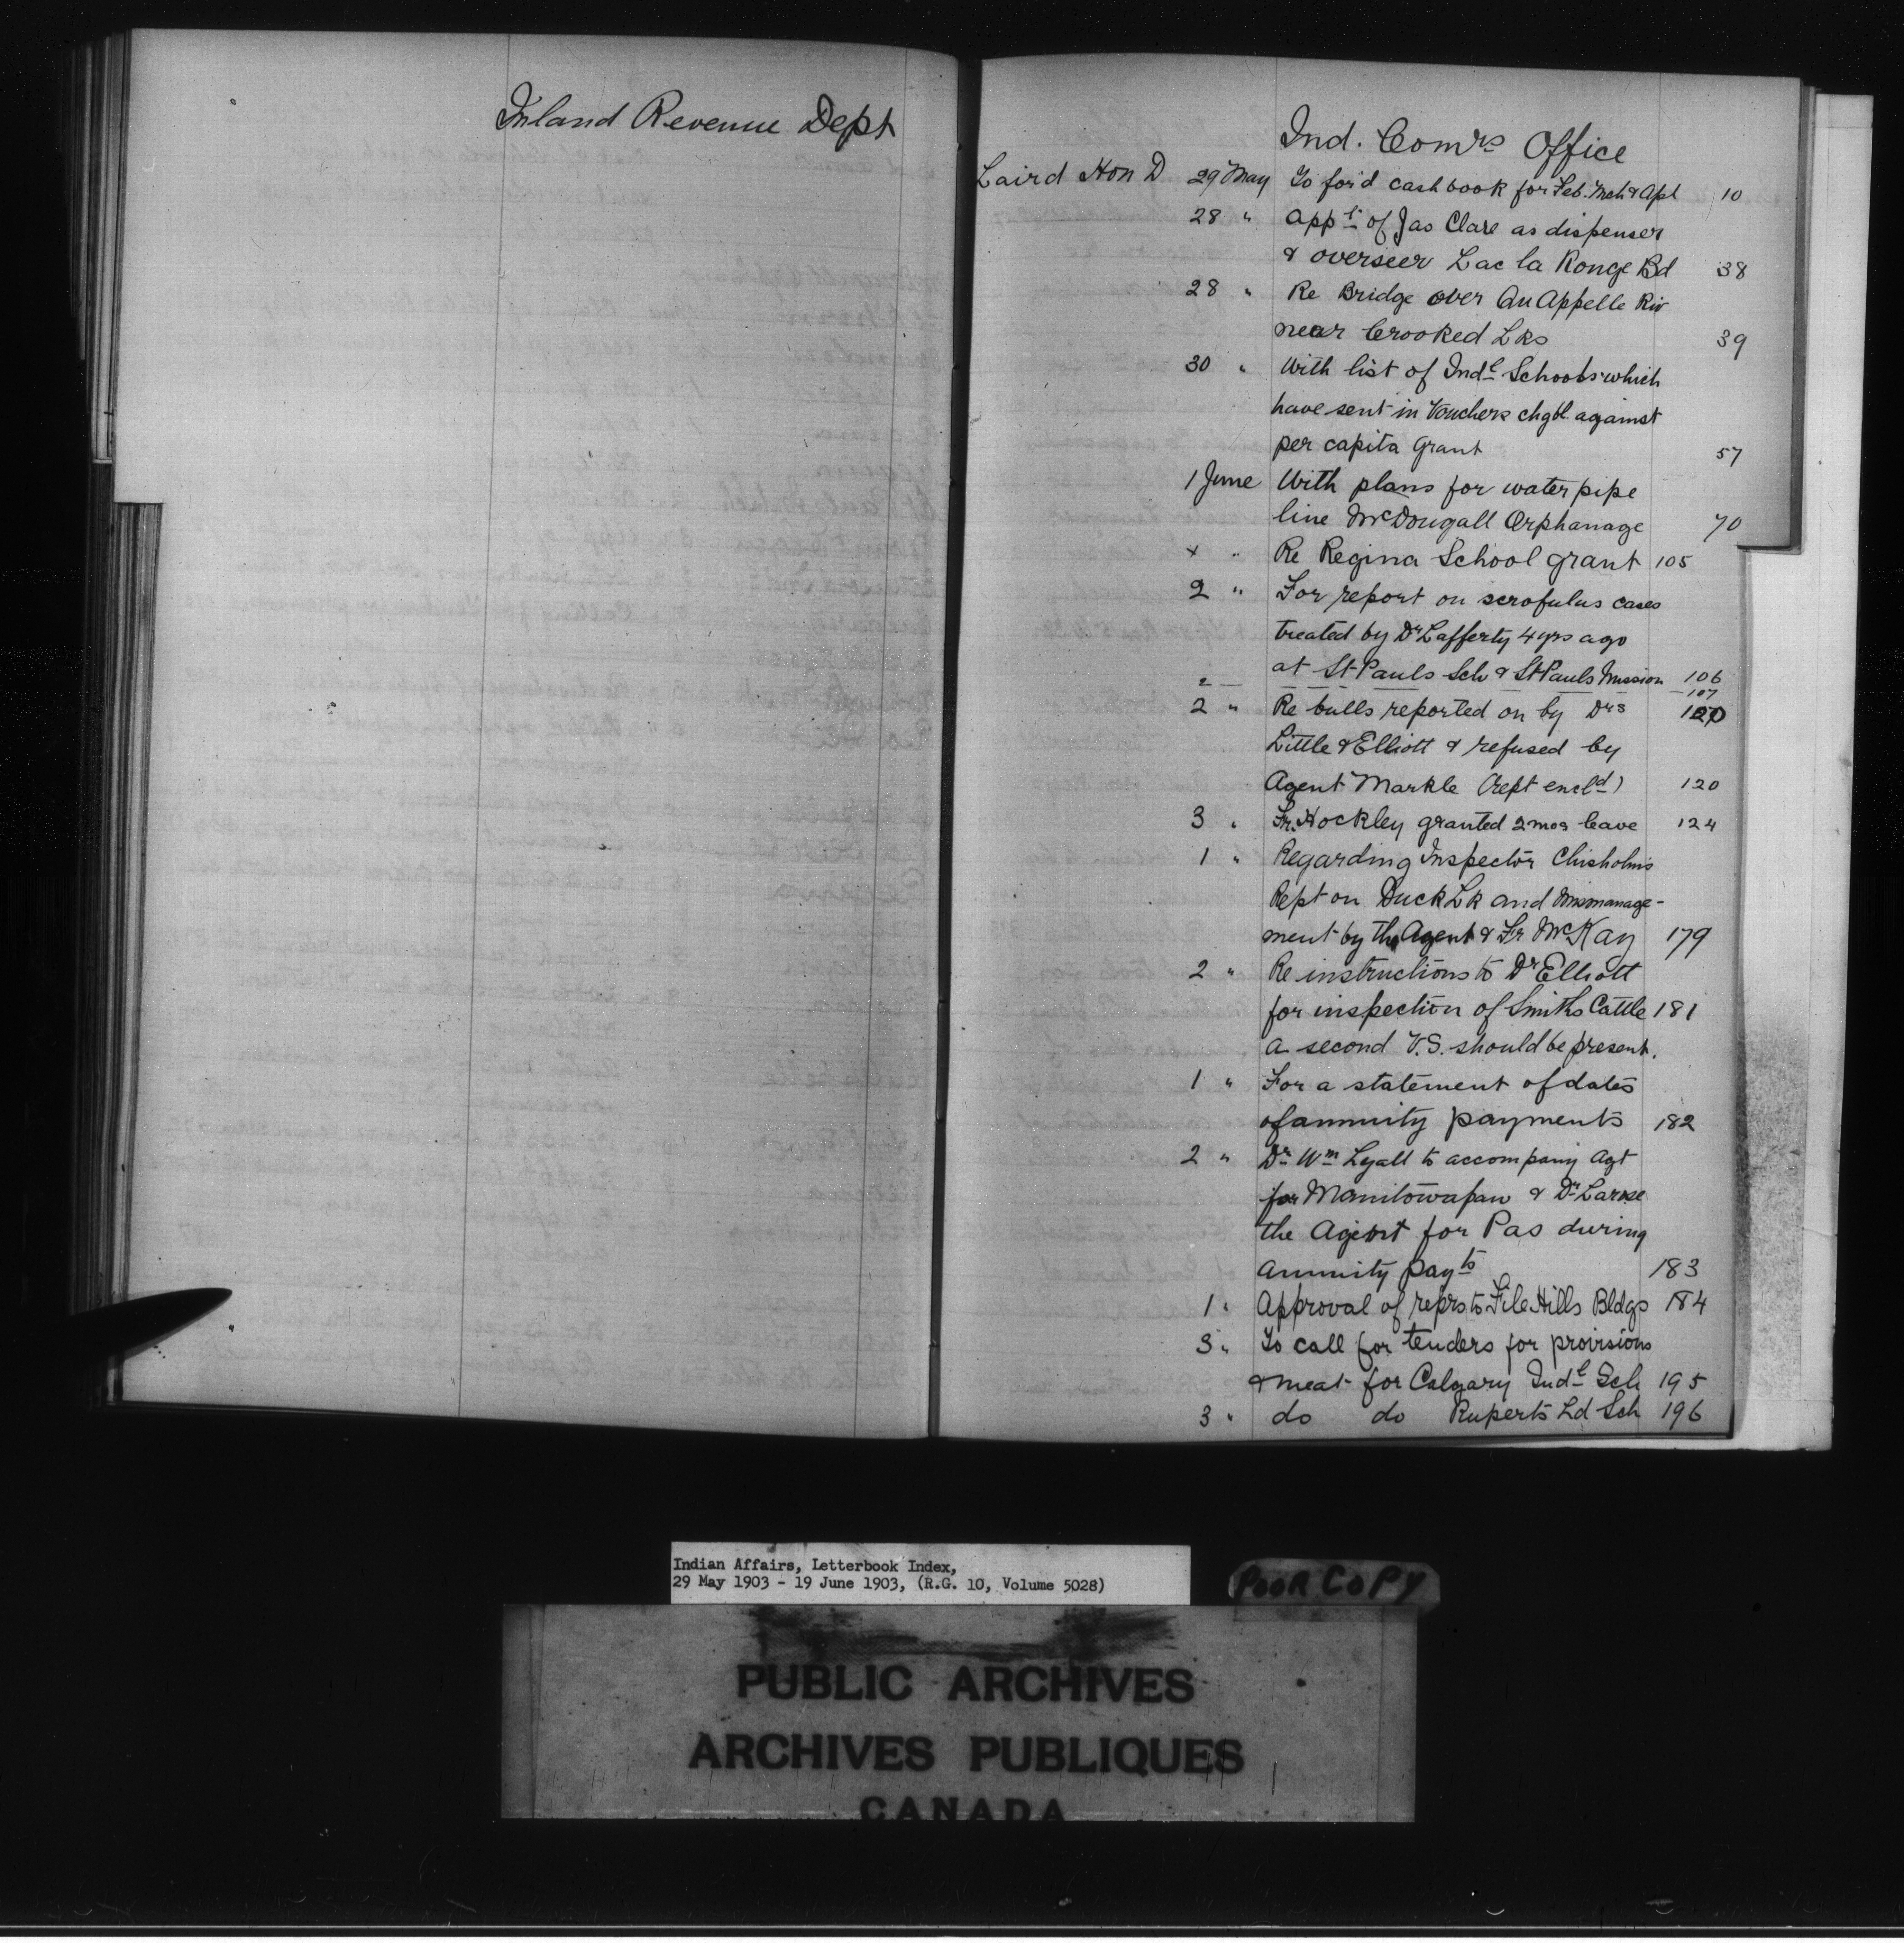 Inland Revenue Dept
Ind. Comrs Office
Laird Hon D 29 May To for'd cash book for Feb. Mch & Apl 10
28 " Appt of Jas Clare as dispenser
& overseer Lac la Ronge Bd 38
28 " Re Bridge over Qu Appelle Riv
near Crooked Lks 39
30 " With list of Indl Schools which
have sent in Vouchers chgbl. against
per capita Grant 57
1 June With plans for water pipe
line McDougall Orphanage 70
" Re Regina School grant 105
2 " For report on scrofulus cases
treated by Dr Lafferty 4 yrs ago
at St Pauls Sch & St Pauls Mission 106
2 — — — — — — 107
2 " Re bulls reported on by Drs
Little & Elliott & refused by
Agent Markle (rept encld) 120
3 " Fr. Hockley granted 2 mos leave 124
1 " Regarding Inspector Chisholms
Rept on Duck Lk and Mismanage-
ment by the Agent & Fr McKay 179
2 " Re instructions to Dr Elliott
for inspection of Smiths Cattle 181
a second V.S. should be present.
1 " For a statement of dates
of annuity payments 182
2 " Dr Wm Lyall to accompany Agt
for Manitowapaw & Dr Larose
the Agent for Pas during
Annuity payts 183
1 " Approval of reprs to File Hills Bldgs 184
3 " To call for tenders for provisions
& meat for Calgary Indl Sch 195
3 " do do Ruperts Ld Sch 196
Indian Affairs, Letterbook Index,
29 May 1903 - 19 June 1903, (R.G. 10, Volume 5028)
POOR COPY
PUBLIC ARCHIVES
ARCHIVES PUBLIQUES
CANADA